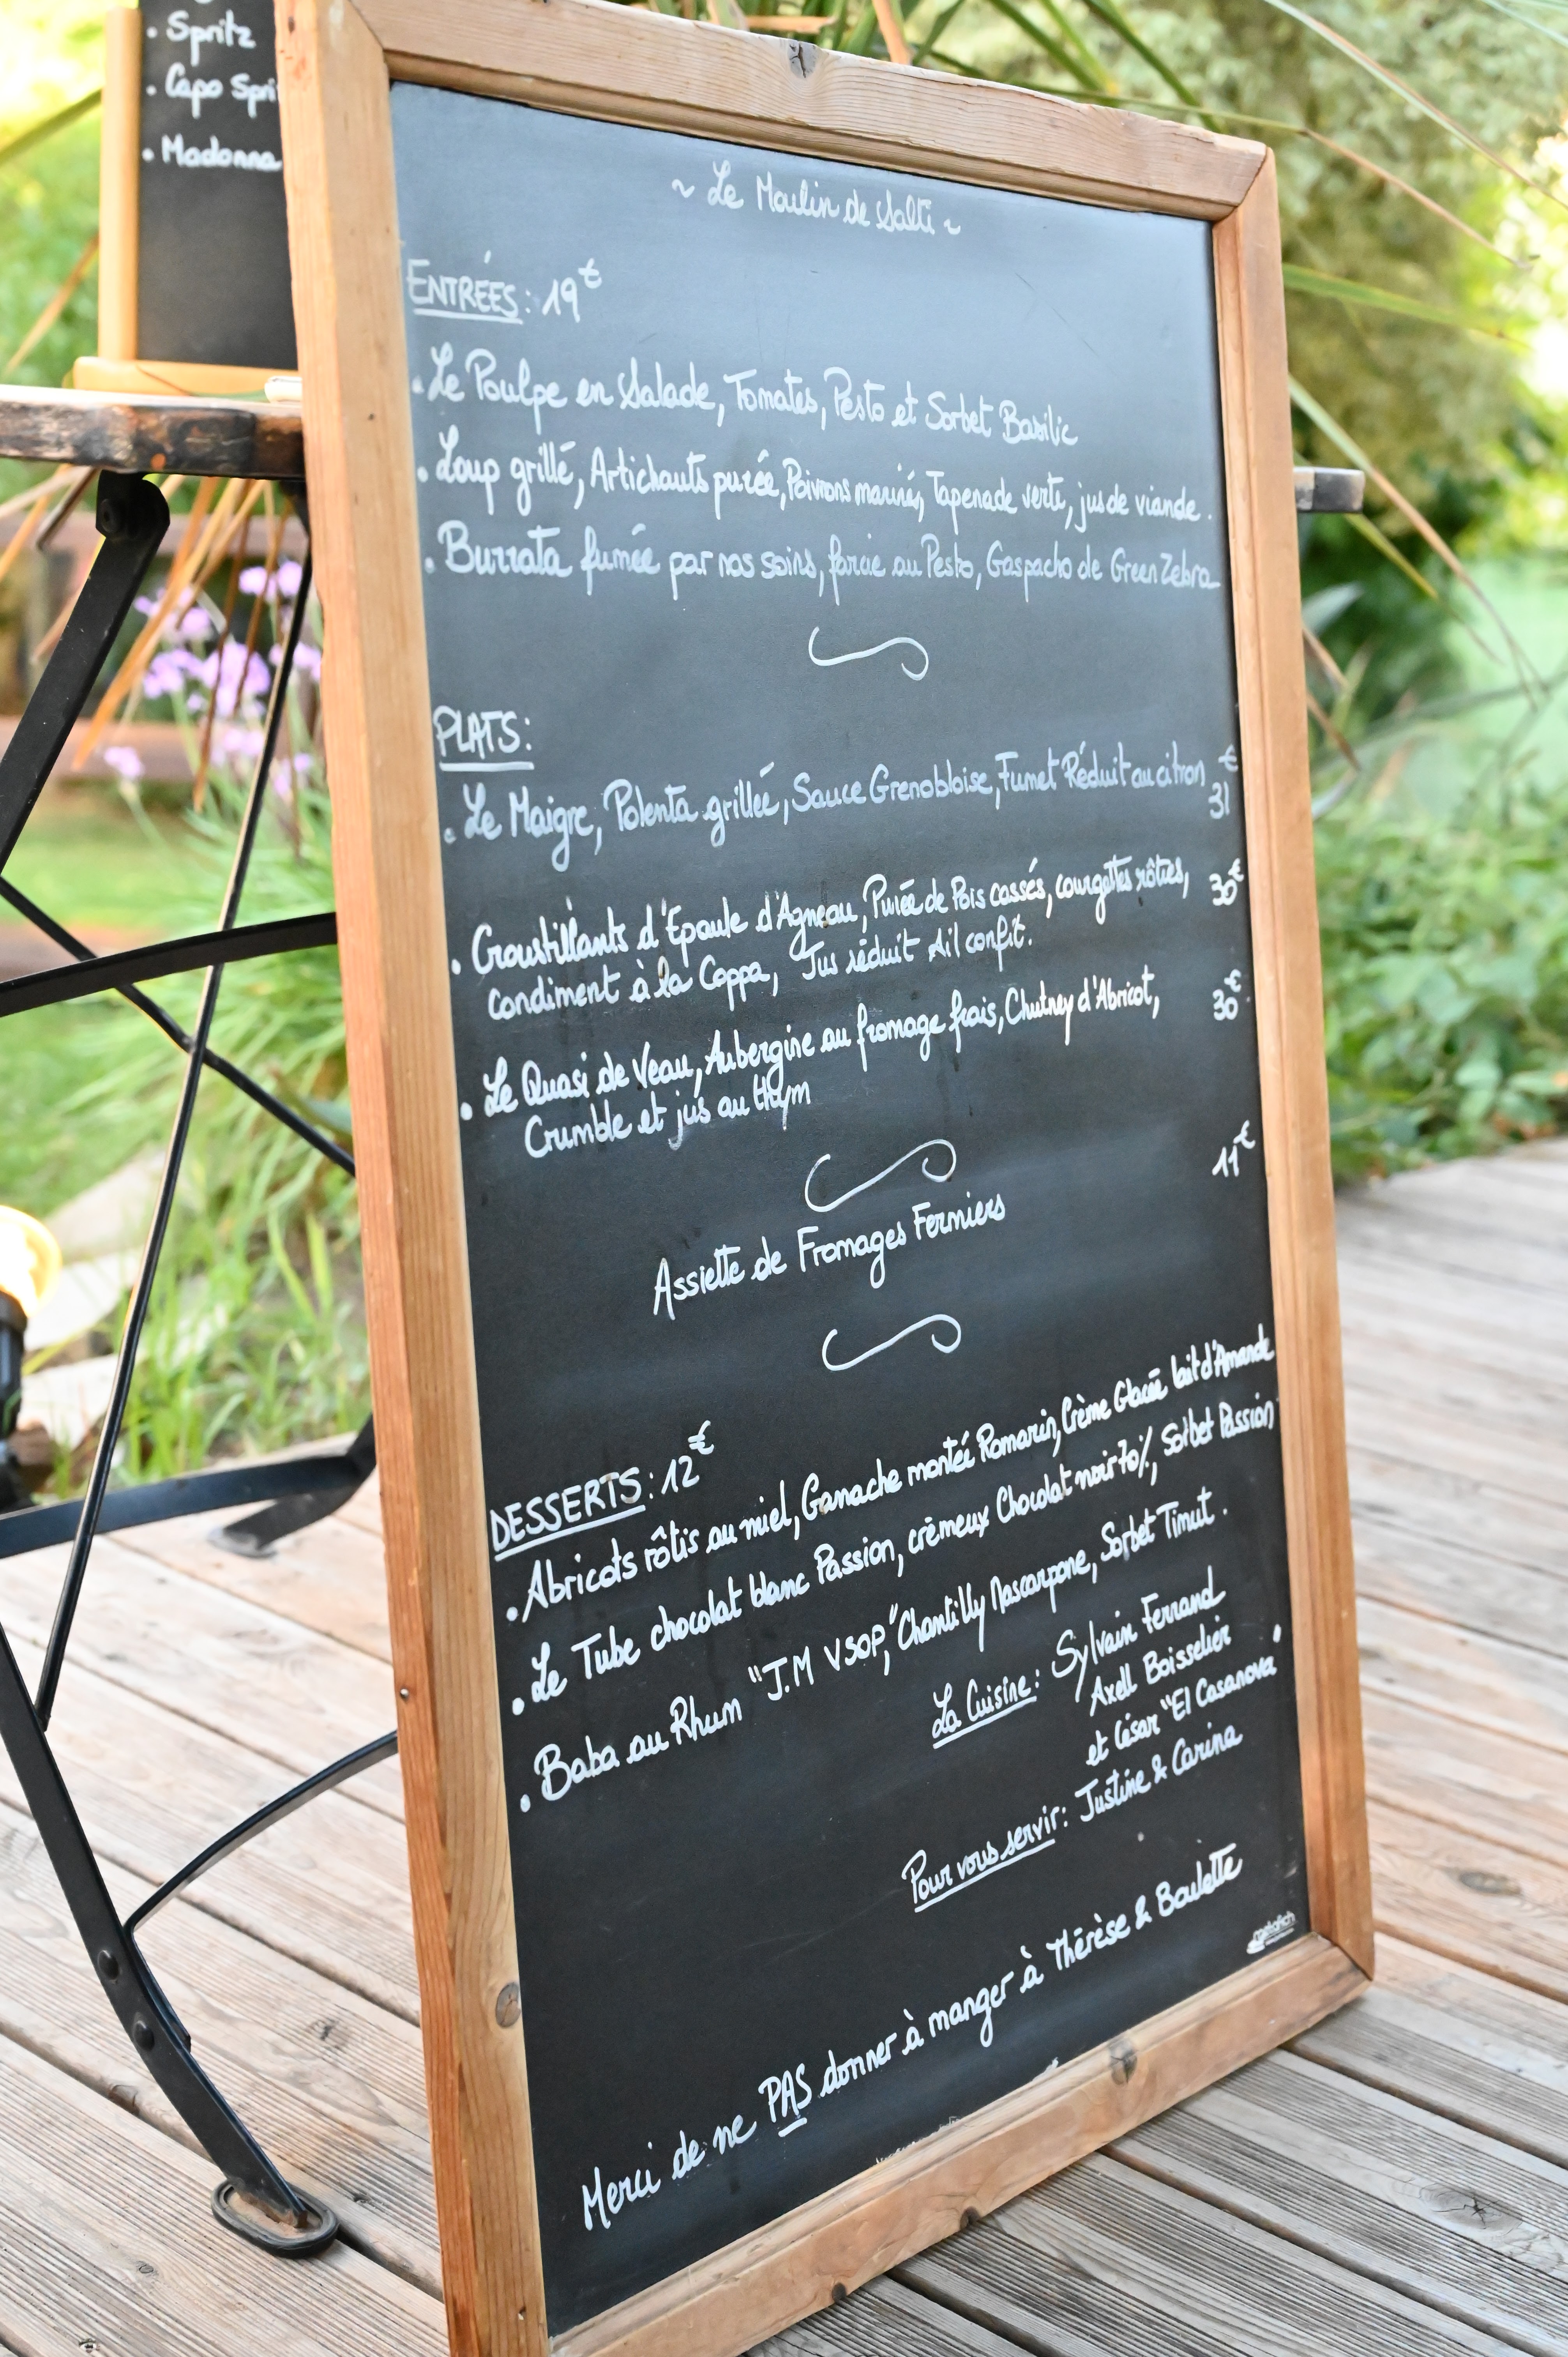 • Spritz
• Capo Spri
• Madonna
~ Le Moulin de Salti ~
ENTRÉES : 19€
• Le Poulpe en Salade, Tomates, Pesto et Sorbet Basilic
• Loup grillé, Artichauts purée, Poivrons marinés, Tapenade verte, jus de viande.
• Burrata fumée par nos soins, farcie au Pesto, Gaspacho de Green Zebra
PLATS :
• Le Maigre, Polenta grillée, Sauce Grenobloise, Fumet Réduit au citron 31€
• Croustillants d'Epaule d'Agneau, Purée de Pois cassés, courgettes rôties, 30€
condiment à la Coppa, Jus réduit Ail confit.
• Le Quasi de Veau, Aubergine au fromage frais, Chutney d'Abricot, 30€
Crumble et jus au thym
11€
Assiette de Fromages Fermiers
DESSERTS : 12€
• Abricots rôtis au miel, Ganache montée Romarin, Crème Glacée lait d'Amande
• Le Tube chocolat blanc Passion, crémeux Chocolat noir 70%, Sorbet Passion
• Baba au Rhum "J.M VSOP," Chantilly Mascarpone, Sorbet Timut.
La Cuisine : Sylvain Ferrand
Axell Boisselier
et César "El Casanova"
Pour vous servir : Justine & Carina
Merci de ne PAS donner à manger à Thérèse & Boulette